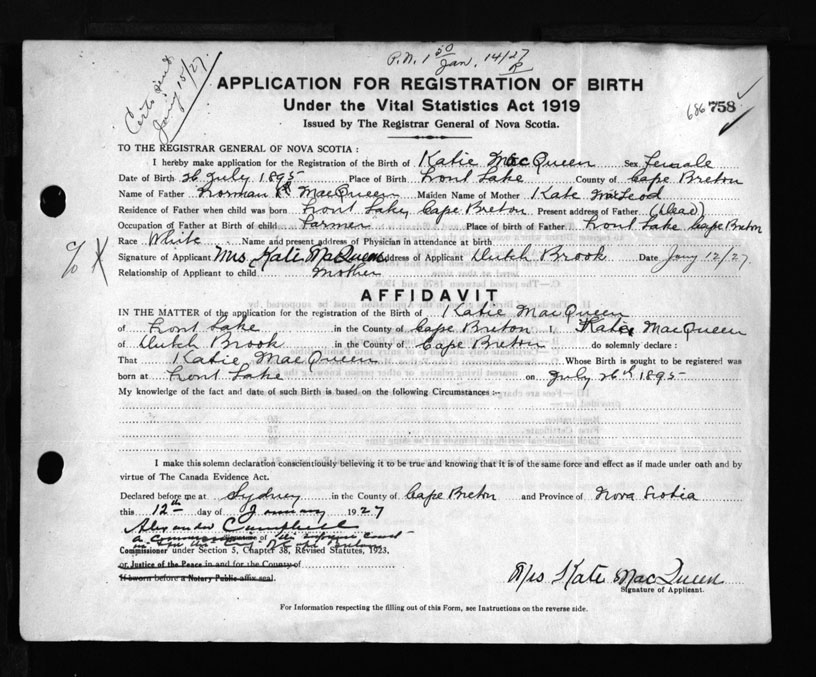 P.N. 1 50 Jan. 14/27
R
Certs sent
Jany 15/27.
APPLICATION FOR REGISTRATION OF BIRTH
Under the Vital Statistics Act 1919
686 758
Issued by The Registrar General of Nova Scotia.
TO THE REGISTRAR GENERAL OF NOVA SCOTIA :
I hereby make application for the Registration of the Birth of Katie MacQueen Sex Female
Date of Birth 26 July 1895 Place of Birth Front Lake County of Cape Breton
Name of Father Norman MacQueen Maiden Name of Mother Kate McLeod
Residence of Father when child was born Front Lake, Cape Breton Present address of Father (Dead)
Occupation of Father at Birth of child Farmer Place of birth of Father Front Lake Cape Breton
Race White Name and present address of Physician in attendance at birth
Signature of Applicant Mrs. Kate MacQueen Address of Applicant Dutch Brook Date Jany 12/27.
Relationship of Applicant to child Mother
% X
AFFIDAVIT
IN THE MATTER of the application for the registration of the Birth of Katie MacQueen
of Front Lake in the County of Cape Breton I, Kate MacQueen
of Dutch Brook in the County of Cape Breton do solemnly declare :
That Katie MacQueen Whose Birth is sought to be registered was
born at Front Lake on July 26th 1895
My knowledge of the fact and date of such Birth is based on the following Circumstances :-
I make this solemn declaration conscientiously believing it to be true and knowing that it is of the same force and effect as if made under oath and by
virtue of The Canada Evidence Act.
Declared before me at Sydney in the County of Cape Breton and Province of Nova Scotia
this 12th day of January 1927
Alexander Campbell
a Commissioner of the Supreme Court
Commissioner under Section 5, Chapter 38, Revised Statutes, 1923,
or Justice of the Peace in and for the County of
If sworn before a Notary Public affix seal.
Mrs Kate MacQueen
Signature of Applicant.
For Information respecting the filling out of this Form, see Instructions on the reverse side.